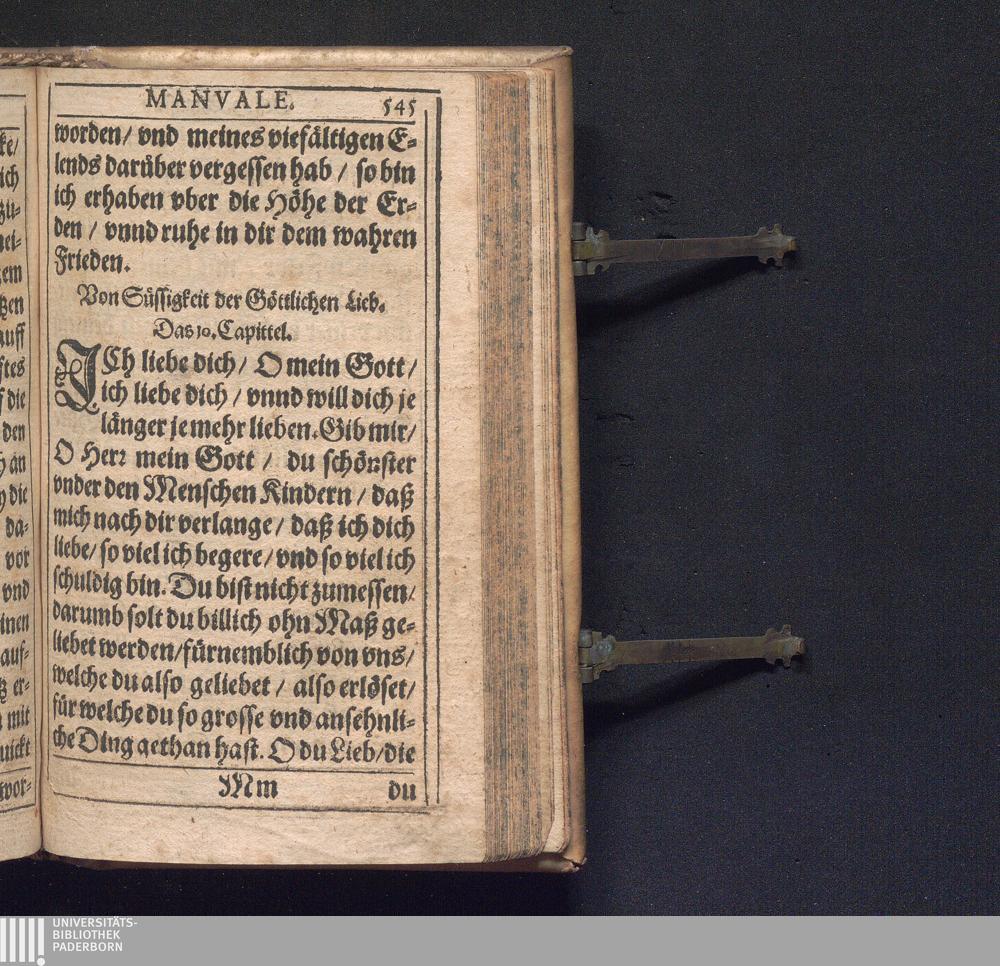 MANVALE. 545
worden/ vnd meines viefältigen E-
lends darüber vergessen hab / so bin
ich erhaben vber die Höhe der Er-
den / vnnd ruhe in dir dem wahren
Frieden.
Von Süssigkeit der Göttlichen Lieb.
Das 10. Capittel.
ICh liebe dich/ O mein Gott/
ich liebe dich / vnnd will dich je
länger je mehr lieben. Gib mir/
O Herr mein Gott / du schönster
vnder den Menschen Kindern / daß
mich nach dir verlange / daß ich dich
liebe/ so viel ich begere/ vnd so viel ich
schuldig bin. Du bist nicht zumessen/
darumb solt du billich ohn Maß ge-
liebet werden/ fürnemblich von vns/
welche du also geliebet / also erlöset/
für welche du so grosse vnd ansehnli-
che Ding gethan hast. O du Lieb/ die
Mm du
ke/
ich
zu-
nei-
zem
tzen
auff
ftes
f die
den
h an
y die
da-
vor
vnd
inen
auf-
tz er-
mit
uickt
wor-
UNIVERSITÄTS-
BIBLIOTHEK
PADERBORN